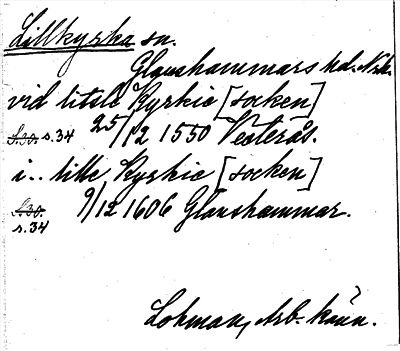 Lillkyrka sn.
Glanshammars hd. Nrk.
vid litsle Kyrkie [socken]
S.30. s.34 25/12 1550 Vesterås.
i.. lille Kyrkie [socken]
S.30. s.34 9/12 1606 Glanshammar.
Lohman, Arb. känn.